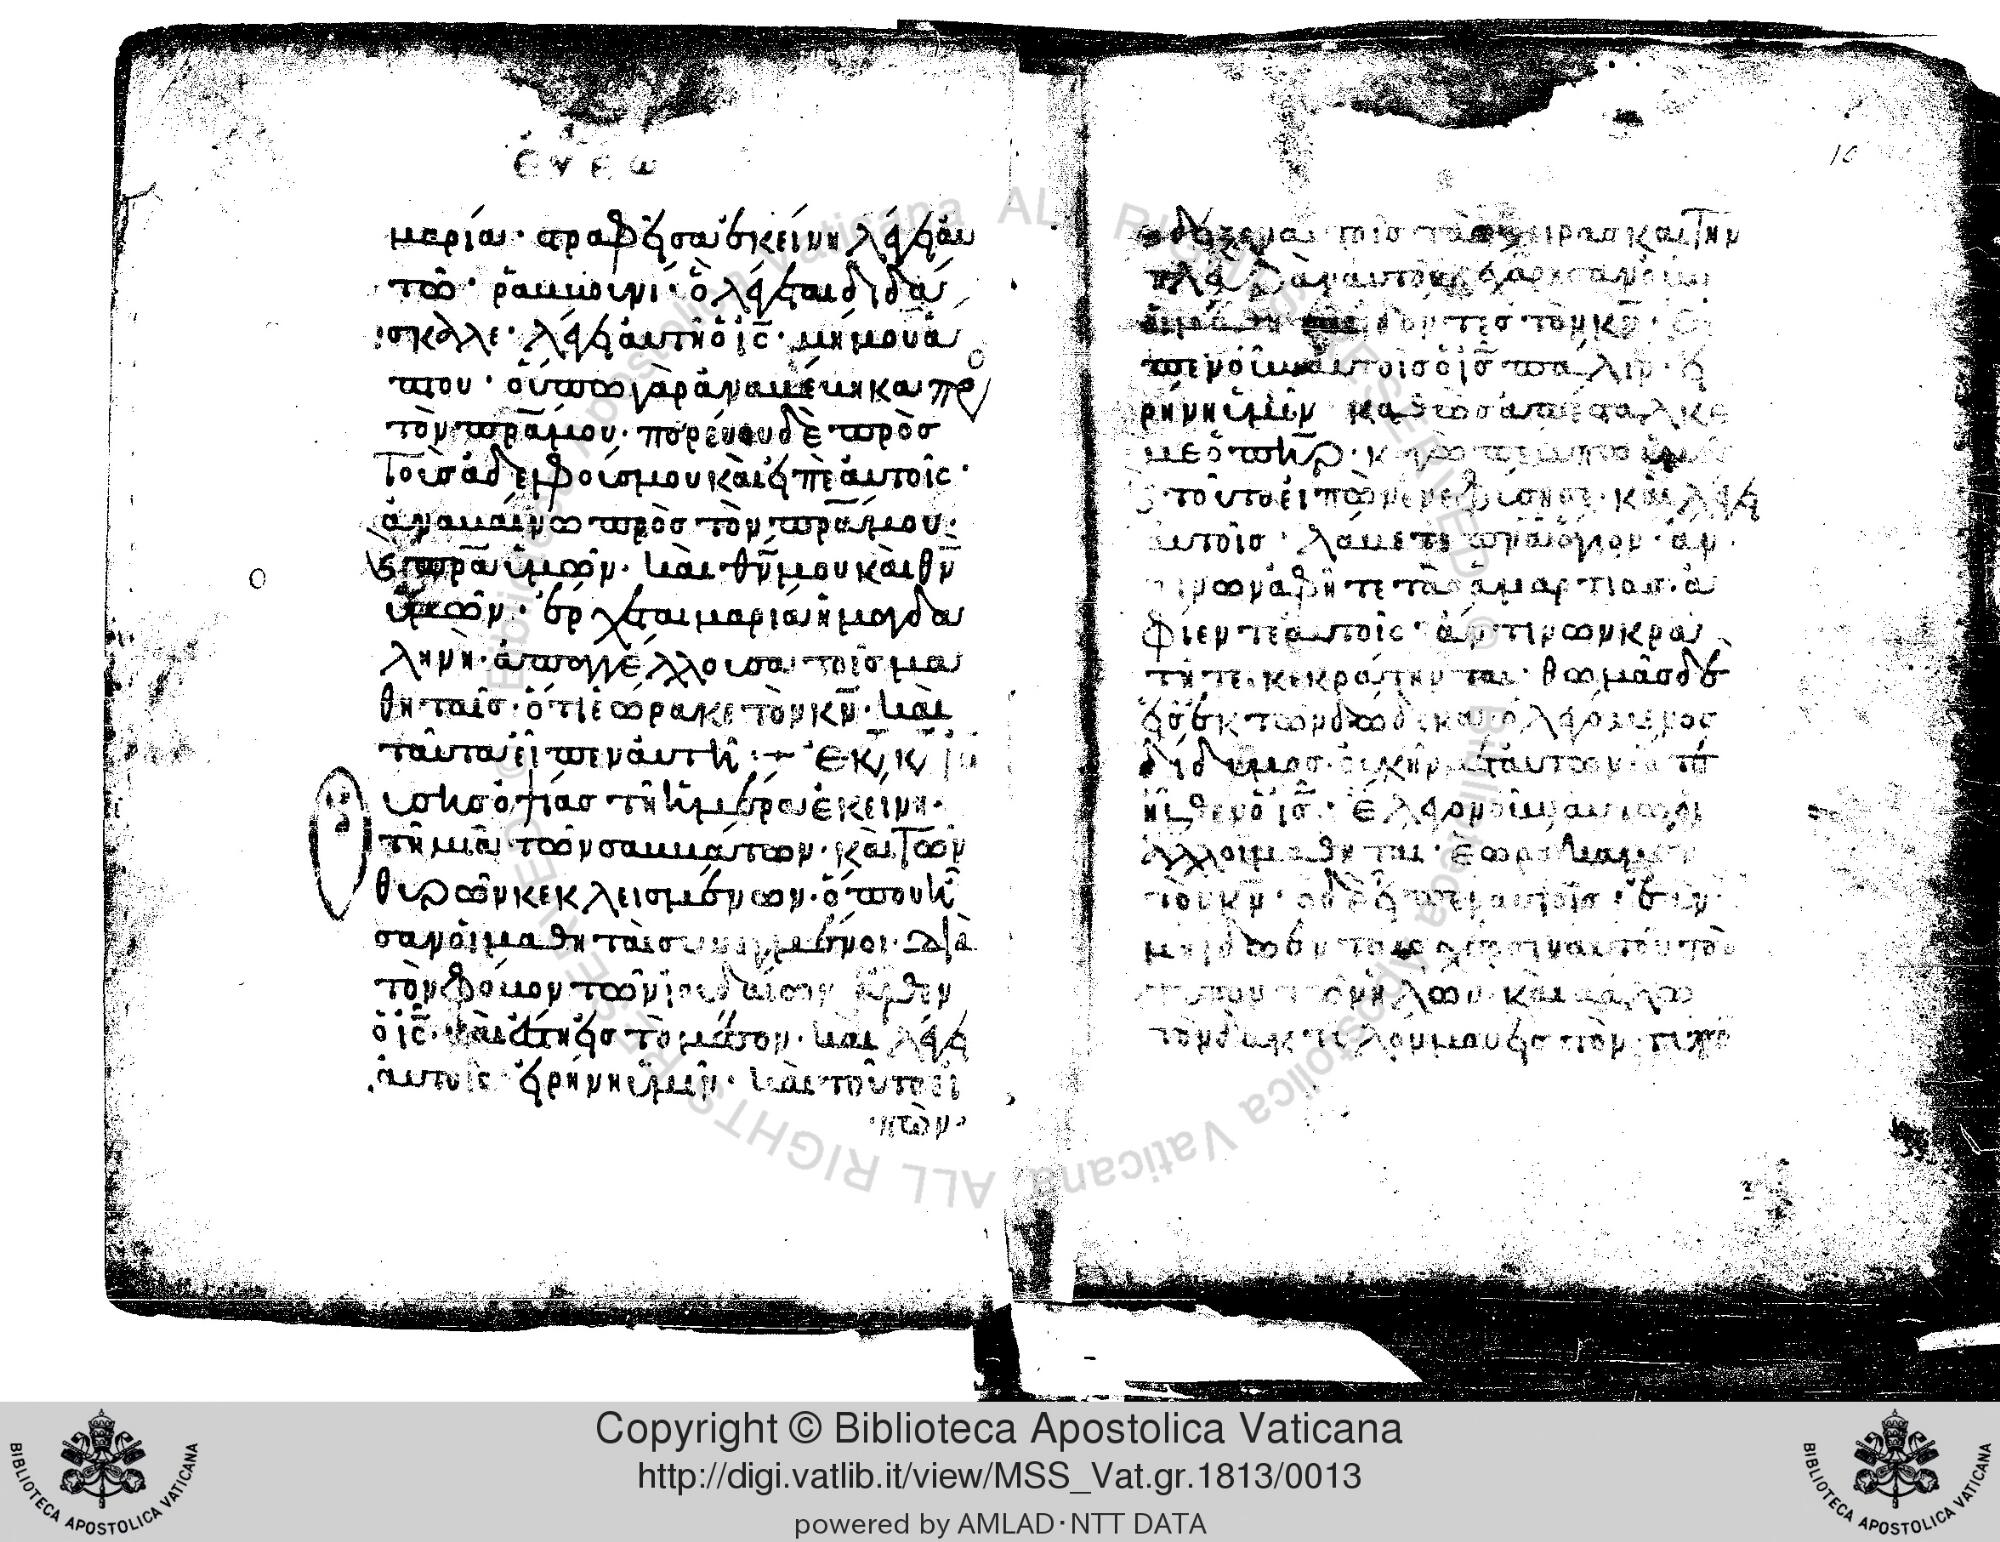 ἑνεω
μαρία· στραφεῖσα ἐκείνη λέγει αυ
τῶ· ραββουνί· ὃ λέγεται διδά
σκαλε· λέγει αυτῆ ὁ ις̅· μή μου ἅ
πτου· οὔπω γὰρ ἀναβέβηκα πρ
τὸν πρ̅α μου· πορεύου δὲ πρὸς
τοὺς ἀδελφούς μου καὶ εἰπὲ ἀυτοῖς·
ἀναβαίνω πρὸς τὸν πρ̅α μου·
ς πρ̅α ὑμῶν· καὶ θν̅ μου καὶ θν̅
ὑμῶν· ἔρχεται μαρία ἡ μαγδα
ληνὴ· ἀπαγγέλλουσα τοῖς μα
θηταῖς· ὅτι ἑώρακε τὸν κν̅· καὶ
ταῦτα εἶπεν ἀυτῆ :
οὔσης ὀψίας τῆ ἡμέρα ἐκείνη·
τῆ μιᾶ τῶν σαββάτων· καὶ τῶν
θυρῶν κεκλεισμένων· ὅπου ἦ
σαν ὁι μαθηται συνηγμένοι· διὰ
τὸν φόβον τῶν ἰουδαίων ἦλθεν
ὁ ις̅· καὶ ἔστη εἰς τὸ μέσον· καὶ λέγει
ἀυτοῖς εἰρήνη ὑμῖν· καὶ τοῦτο εἰ
πὼν·
10
ἔδειξεν αυτοῖς τὰς χεῖρας καὶ τὴν
πλευρὰν ἀυτοῦ· ἐχάρησαν οὖν
ὁι μαθηταὶ ἰδόντες τὸν κν̅·
πεν οὖν ἀυτοῖς ὁ ις̅ πάλιν· εἰ
ρήνη ὑμῖν καθὼς ἀπέσταλκε
με ὁ πηρ̅· κἀγὼ πέμπω ὑμᾶς
ς τοῦτο εἰπὼν ἐνεφύσησε· καὶ λέγει
ἀυτοῖς· λάβετε πνα̅ ἅγιον· ἄν
τινων ἀφῆτε τὰς ἁμαρτίας· ἀ
φίενται ἀυτοῖς· ἄν τινων κρα
τῆτε κεκράτηνται· θωμᾶς δὲ
εἷς ἐκ τῶν δώδεκα ὁ λεγόμενος
δίδυμος· οὐκ ἦν μετ' ἀυτῶν· ὅτε
ἦλθεν ὁ ις̅· ἔλεγον οὖν αυτῶ οἱ
ἄλλοι μαθηταὶ· ἑωράκαμεν
τὸν κν̅· ὁ δὲ εἶπεν αυτοῖς· ἐὰν
μὴ ἴδω ἐν ταῖς χερσὶν αυτοῦ τὸν
τύπον τῶν ἥλων καὶ βάλω
τὸν δάκτυλόν μου εἰς τὸν τύπο
Copyright © Biblioteca Apostolica Vaticana
http://digi.vatlib.it/view/MSS_Vat.gr.1813/0013
powered by AMLAD·NTT DATA
BIBLIOTECA APOSTOLICA VATICANA
BIBLIOTECA APOSTOLICA VATICANA